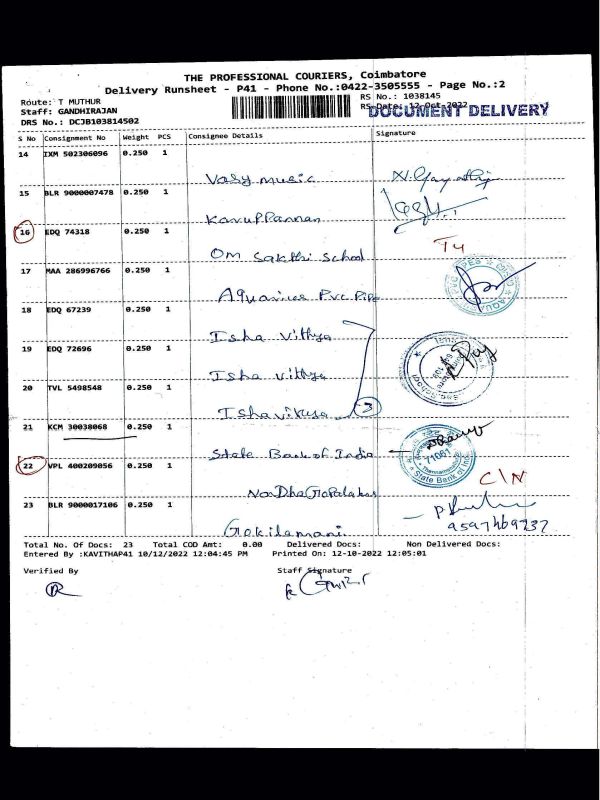 THE PROFESSIONAL COURIERS, Coimbatore
Delivery Runsheet - P41 - Phone No.:0422-3505555 - Page No.:2
Route: T MUTHUR
RS No.: 1038145
Staff: GANDHIRAJAN
RS Date: 12-Oct-2022
DOCUMENT DELIVERY
DRS No.: DCJB103814502
S No Consignment No Weight PCS Consignee Details Signature
14 IXM 502306096 0.250 1
Vasy music
15 BLR 9000007478 0.250 1
Karuppannan
16 EDQ 74318 0.250 1
Om Sakthi School
17 MAA 286996766 0.250 1
Aquarius Pvc Pipe
18 EDQ 67239 0.250 1
Isha Vithya
19 EDQ 72696 0.250 1
Isha vithya
20 TVL 5498548 0.250 1
Isha 3
21 KCM 30038068 0.250 1
State Bank of India
71061
State Bank of India
22 VPL 400209056 0.250 1
C/N
23 BLR 9000017106 0.250 1
Gokilamani
Total No. Of Docs: 23 Total COD Amt: 0.00 Delivered Docs: Non Delivered Docs:
Entered By :KAVITHAP41 10/12/2022 12:04:45 PM Printed On: 12-10-2022 12:05:01
Verified By Staff Signature